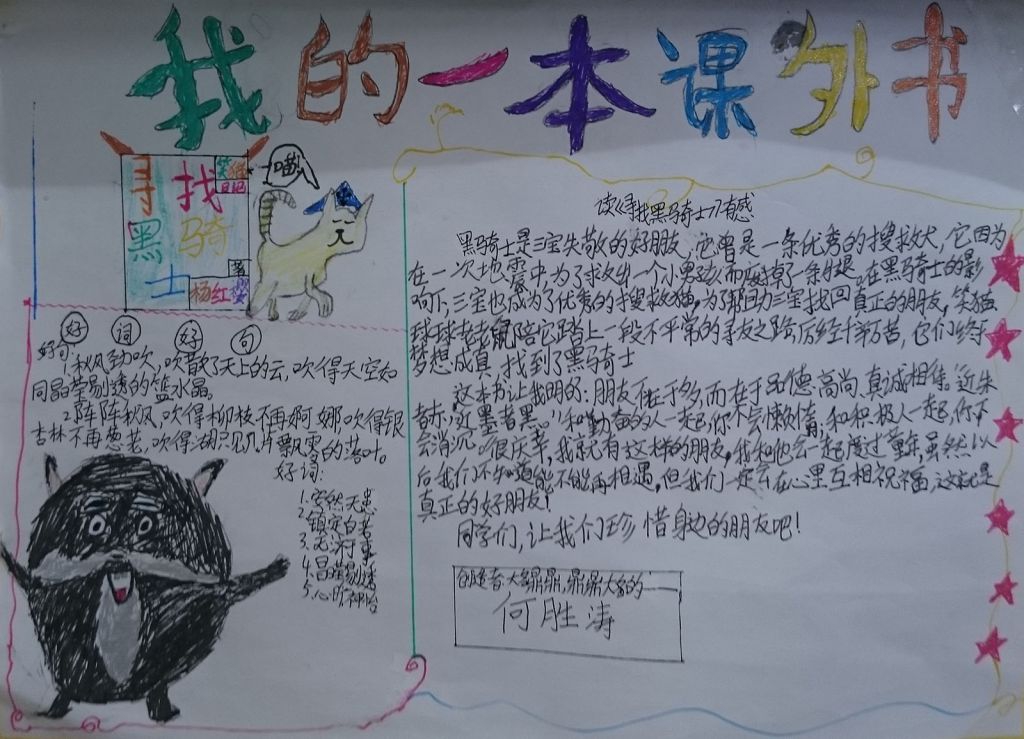 我的一本课外书
寻找
黑骑
士
笑猫
日记
杨红樱
著
喵!
好词好句
好句:1.秋风劲吹,吹散了天上的云,吹得天空如
同晶莹剔透的篮水晶。
2.阵阵秋风,吹得柳枝不再婀娜,吹得银
杏林不再葱茏,吹得胡只见几片飘零的落叶。
好词:
1.安然无恙
2.镇定自若
3.
4.晶莹剔透
5.心旷神怡
读《寻找黑骑士》有感
黑骑士是三宝失散的好朋友,它曾是一条优秀的搜救犬,它因为
在一次地震中,为了求出一个小男孩而砸掉了一条腿。在黑骑士的影
响下,三宝也成为了优秀的搜救猫。为了帮助三宝找回真正的朋友,笑猫
球球老老鼠陪它踏上一段不平常的寻友之路历经千辛万苦,它们终于
梦想成真,找到了黑骑士
这本书让我明白:朋友不在于多,而在于品德高尚、真诚相待。“近朱
者赤,近墨者黑。”和勤奋的人一起,你不会懒惰,和积极人一起,你不
会消沉。很庆幸,我就有这样的朋友,我和他会一起度过童年,虽然以
后我们不知道能不能再相遇,但我们一定会在心里互相祝福,这就是
真正的好朋友!
同学们,让我们珍惜身边的朋友吧!
创造者:大名鼎鼎,鼎鼎大名的——
何胜涛